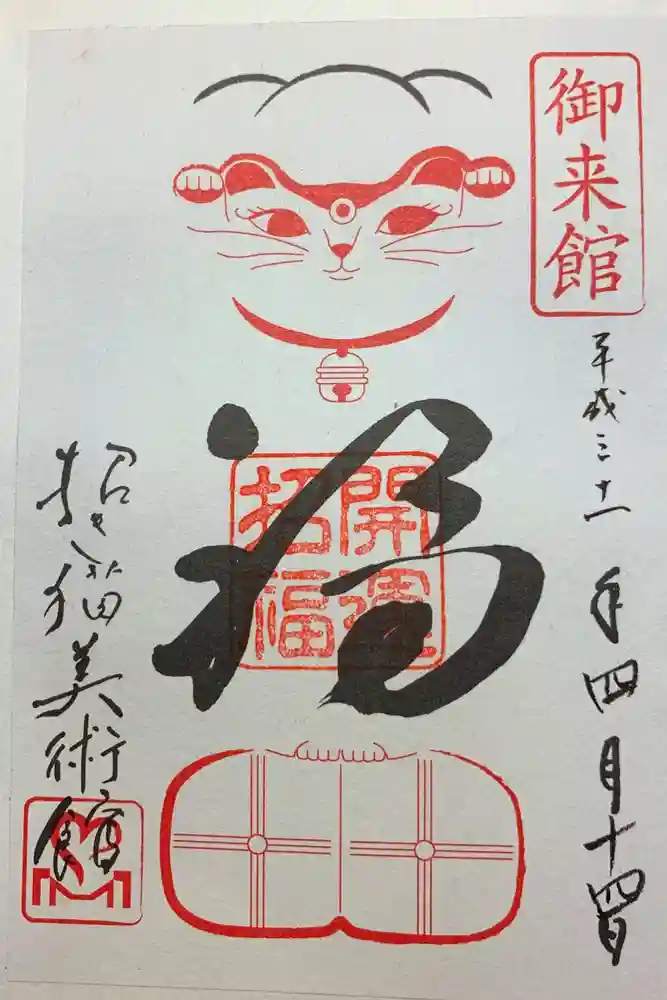 御来館
平成三十一年四月十四日
開運
招福
福
招き猫美術館